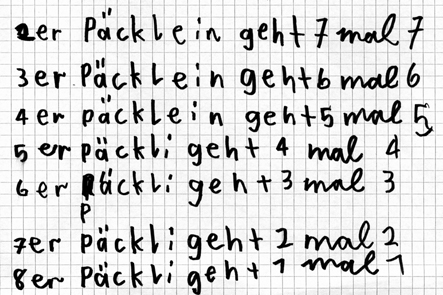 2er Päcklein geht 7 mal 7
3er Päcklein geht 6 mal 6
4er päcklein geht 5 mal 5
5er päckli geht 4 mal 4
6er päckli geht 3 mal 3
p
7er päckli geht 2 mal 2
8er päckli geht 1 mal 1